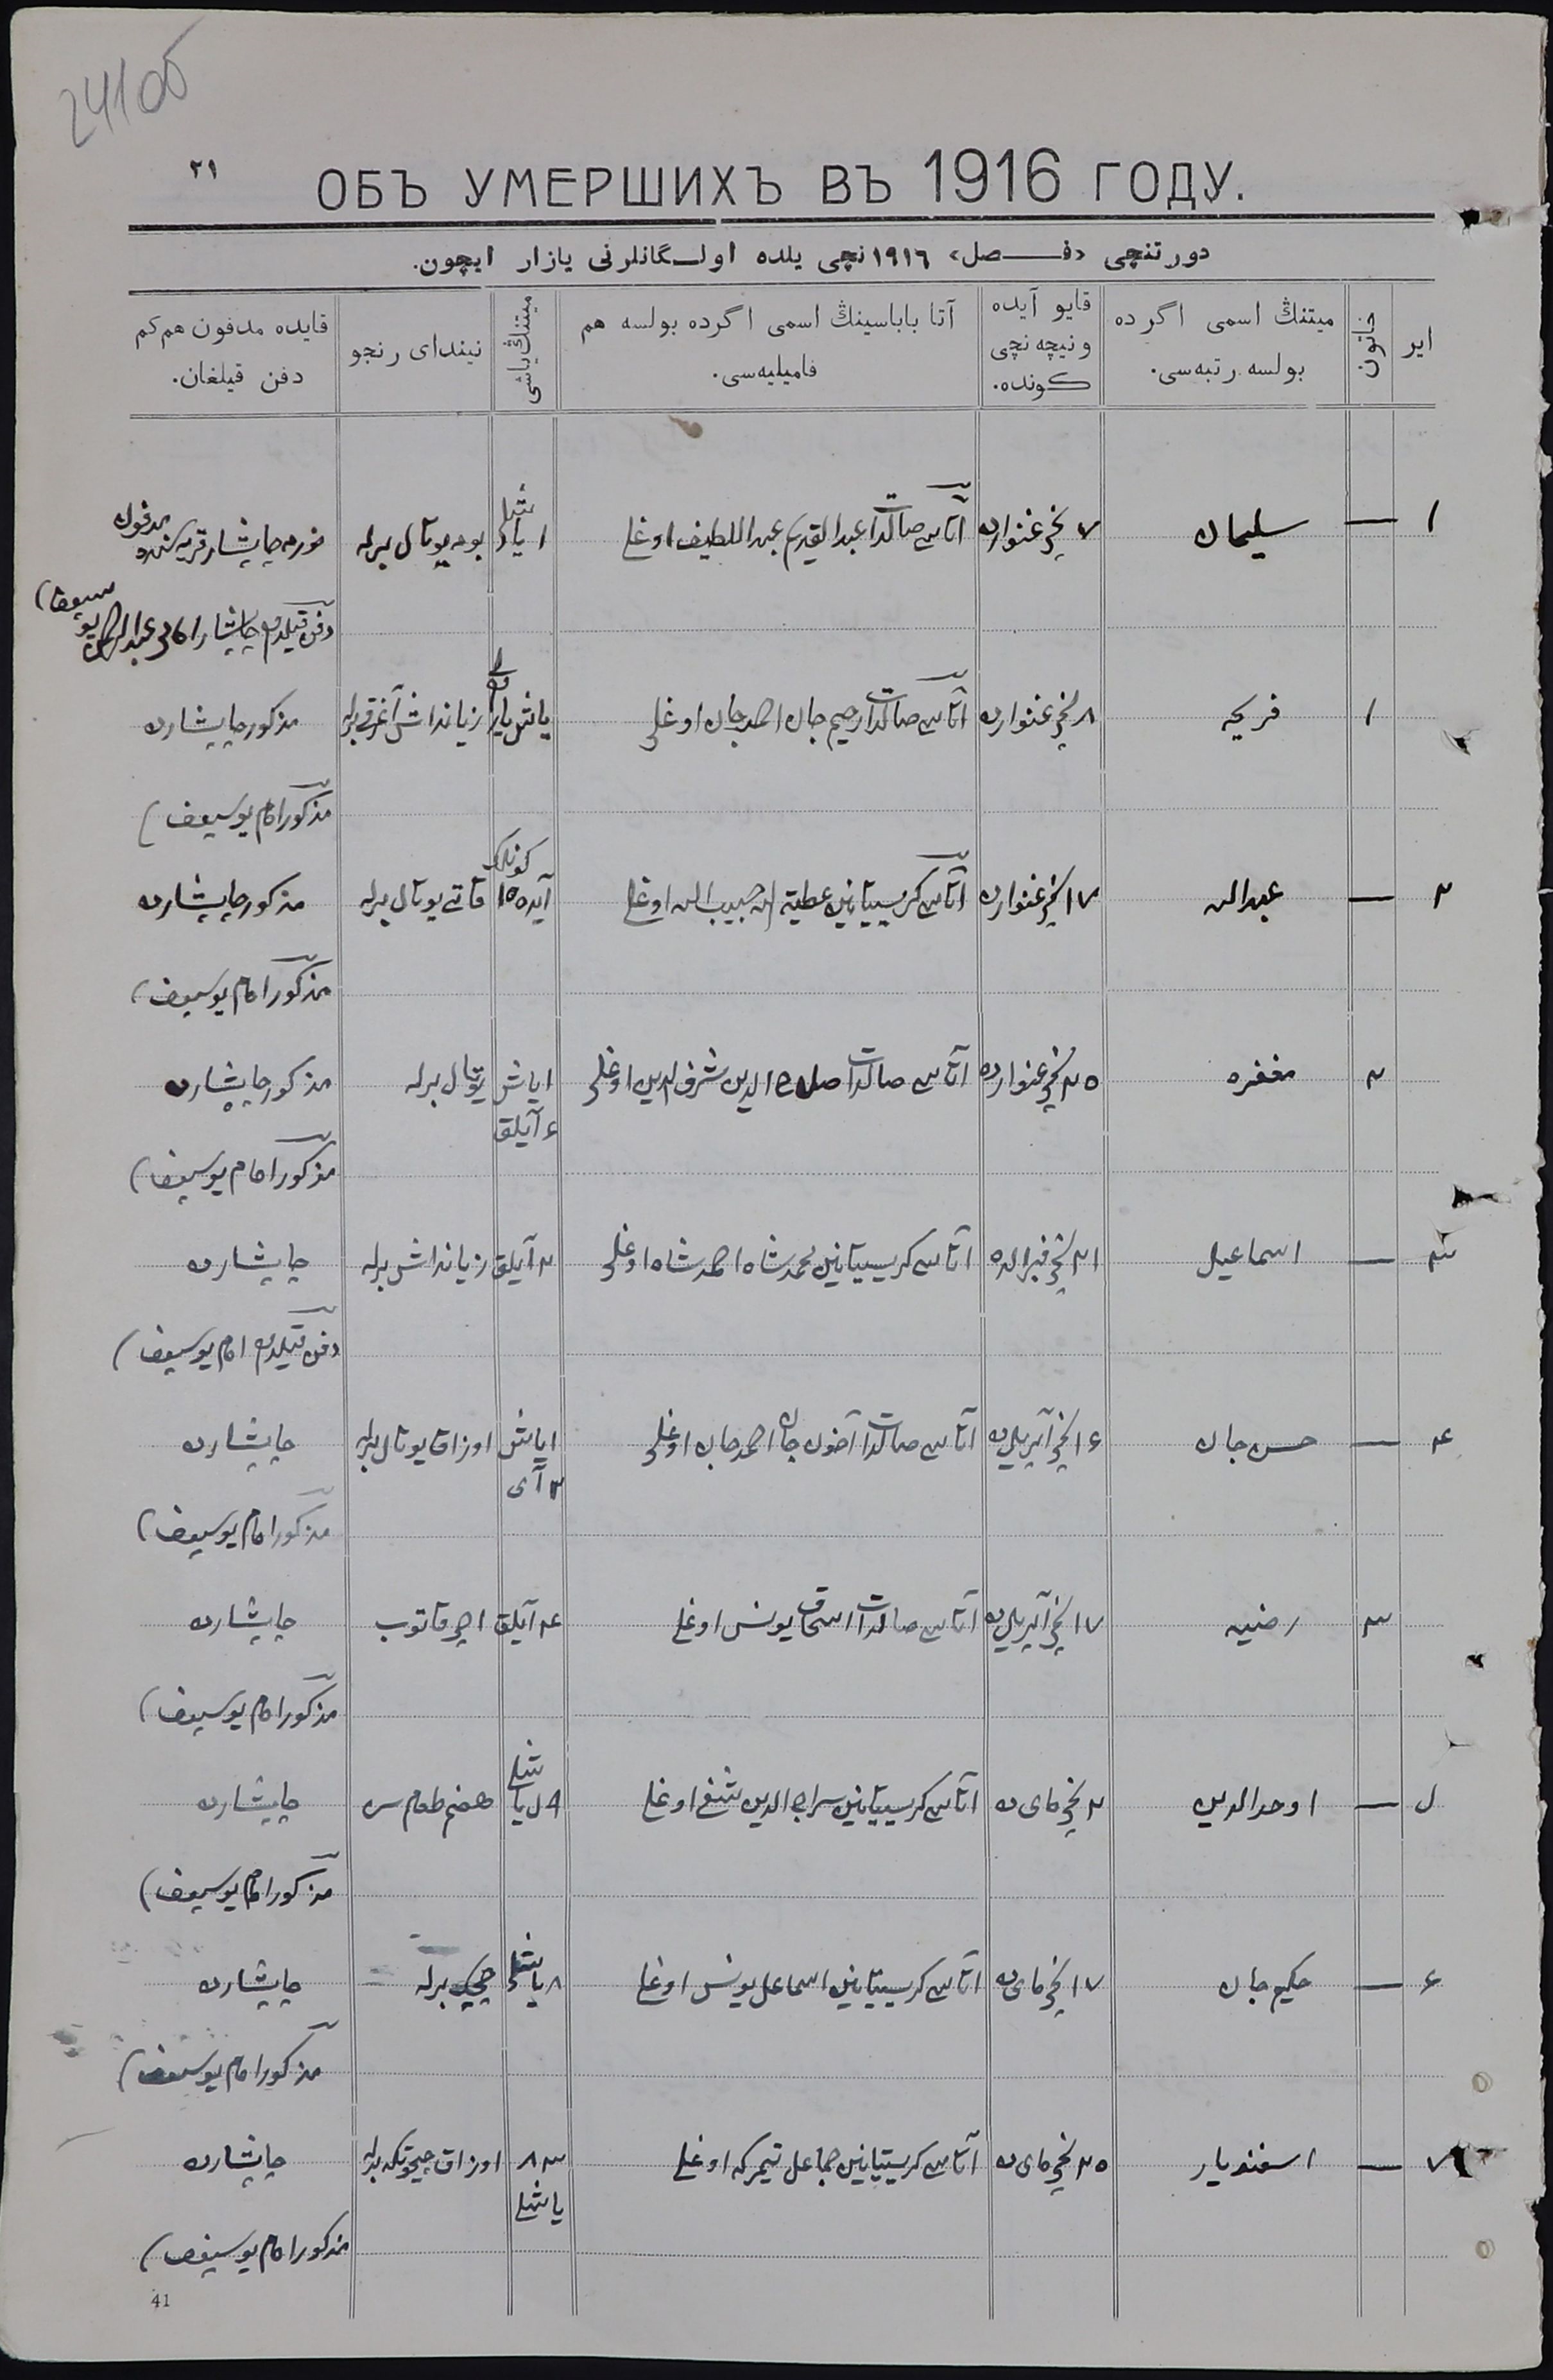 241об
٢١
ОБЪ УМЕРШИХЪ ВЪ 1916 ГОДУ.
دورتنچی «فـــصل» ١٩١٦نچی یلده اولـگانلرنی یازار ایچون.
ایر
خاتون
میتنڭ اسمی اگرده
بولسه رتبه‌سی.
قایو آیده
ونیچه نچی
کونده.
آتا باباسینڭ اسمی اگرده بولسه هم
فامیلیه‌سی.
میتنڭ یاشی
نیندای رنجو
قایده مدفون هم کم
دفن قیلغان.
١ — سلیمان ٧نچی غنوارده آتاسی صالدات عبدالقدیم عبداللطیف اوغلی ١ یاشلی یوتال برله چاپشار قریه‌سنده مدفون
دفن قیلدم چاپشار امامی عبدالرحمن یوسیف)
١ فریحه ٨نچی غنوارده آتاسی صالدات رحیم جان احمدجان اوغلی زیانداش آغرقی برله مذکور چاپشارده
مذکور امام یوسیف)
٢ — عبدالله ١٧نچی غنوارده آتاسی کرسیتیانین عطیة الله حبیب الله اوغلی ١٥ کونلک قاتی یوتال برله مذکور چاپشارده
مذکور امام یوسیف)
٢ مغفره ٢٥نچی غنوارده آتاسی صالدات صلاح الدین شرف الدین اوغلی ١ یاش ٤ آیلق یوتال برله مذکور چاپشارده
مذکور امام یوسیف)
٣ — اسماعیل ٢١نچی فبرالده آتاسی کرسیتیانین محمدشاه احمدشاه اوغلی ٢ آیلق زیانداش برله چاپشارده
دفن قیلدم امام یوسیف)
٤ — حسن جان ١٤نچی آپریل‌ده آتاسی صالدات آخون جان احمدجان اوغلی ١ یاش ٢ آی اوزاق یوتال برله چاپشارده
مذکور امام یوسیف)
٣ رضیه ١٧نچی آپریل‌ده آتاسی صالدات اسحاق یونس اوغلی ٢٤ آیلق اچی قاتوب چاپشارده
مذکور امام یوسیف)
٥ — اوحدالدین ٢نچی مای ده آتاسی کرسیتیانین سراج الدین شفیع اوغلی یاشلی هضم طعام سز چاپشارده
مذکور امام یوسیف)
٦ — حکیم جان ١٧نچی مای ده آتاسی کرسیتیانین اسماعل یونس اوغلی ٨ یاشلی چیچک برله چاپشارده
مذکور امام یوسیف)
٧ — اسفندیار ٢٥نچی مای ده آتاسی کرسیتیانین اوغلی ٨٣ یاشلی اوزاق برله چاپشارده
مذکور امام یوسیف)
41